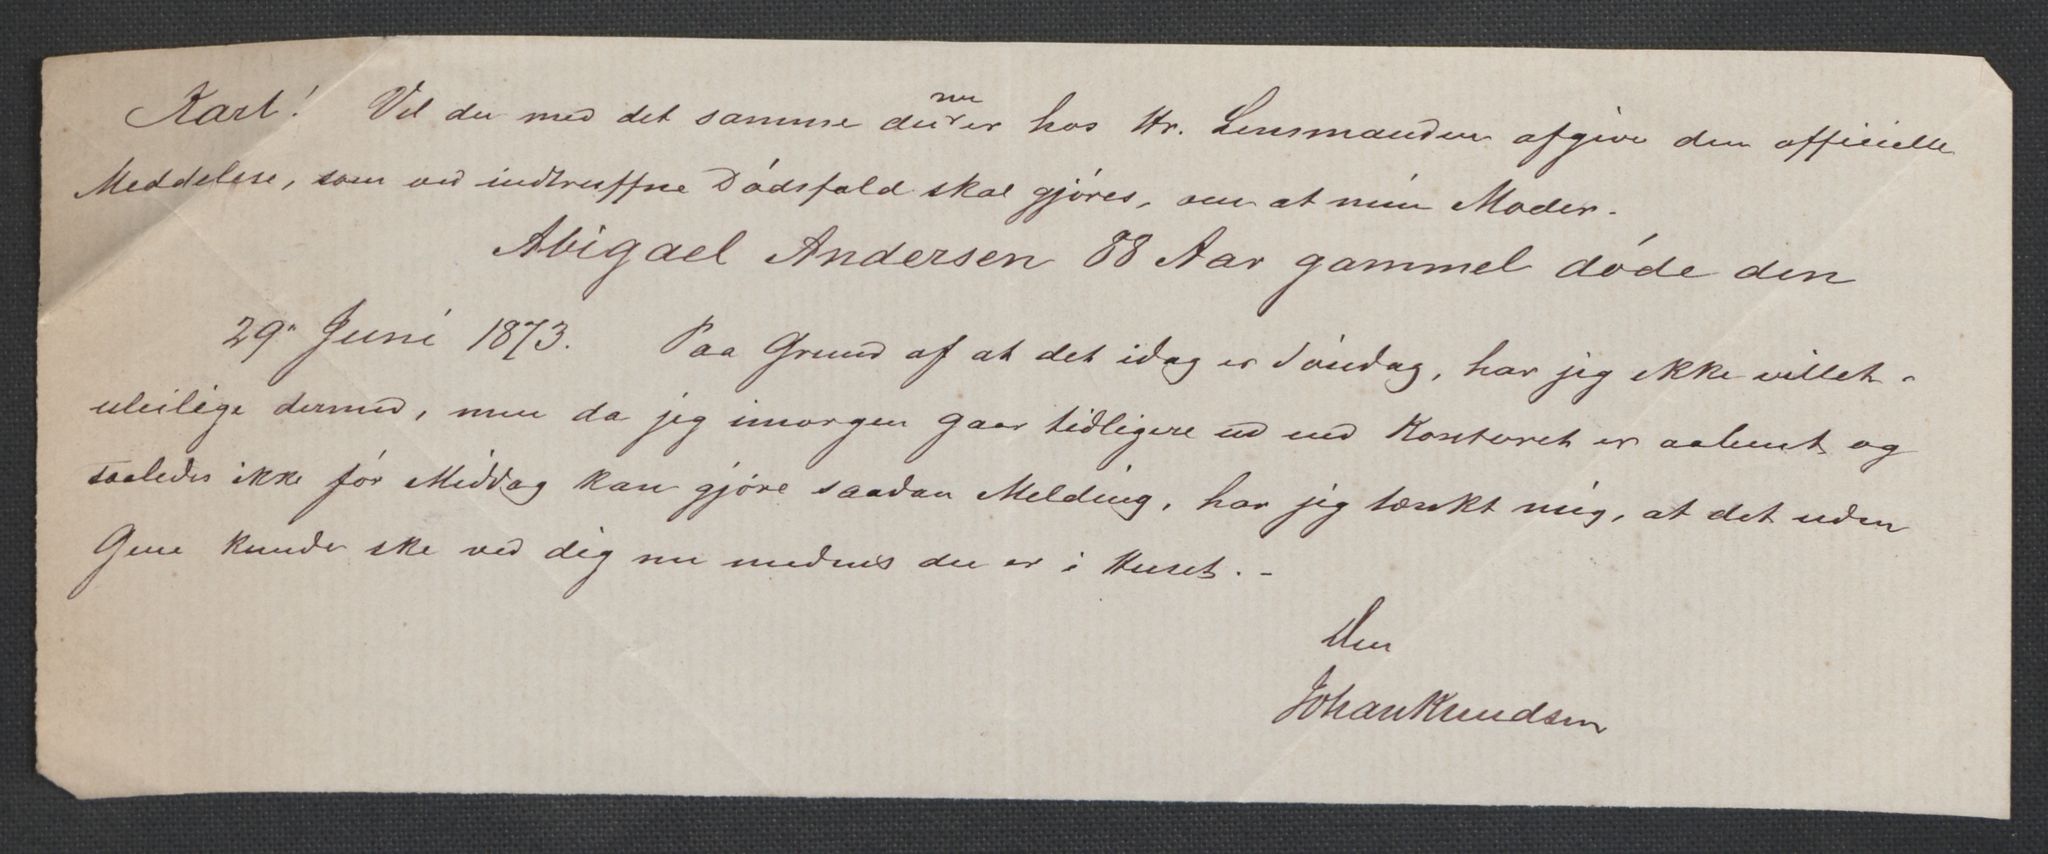 Karl! Vil du med det samme du nu er hos Hr. Lensmanden afgive den officielle
Meddelelse, som ved indtrufne Dódsfald skal gjóres, om at min Moder.
Abigael Andersen 88 Aar gammel dóde den
29n Juni 1873. Paa Grund af at det idag er Sóndag, har jeg ikke villet
uleilige dermed, men da jeg imorgen gaar tidligere ud end Kontoret er aabent og
saaledes ikke fór Middag kan gjóre saadan Melding, har jeg tænkt mig, at det uden
Gene kunde ske ved dig nu medens du er i Huset. -
Din
Johan Knudsen